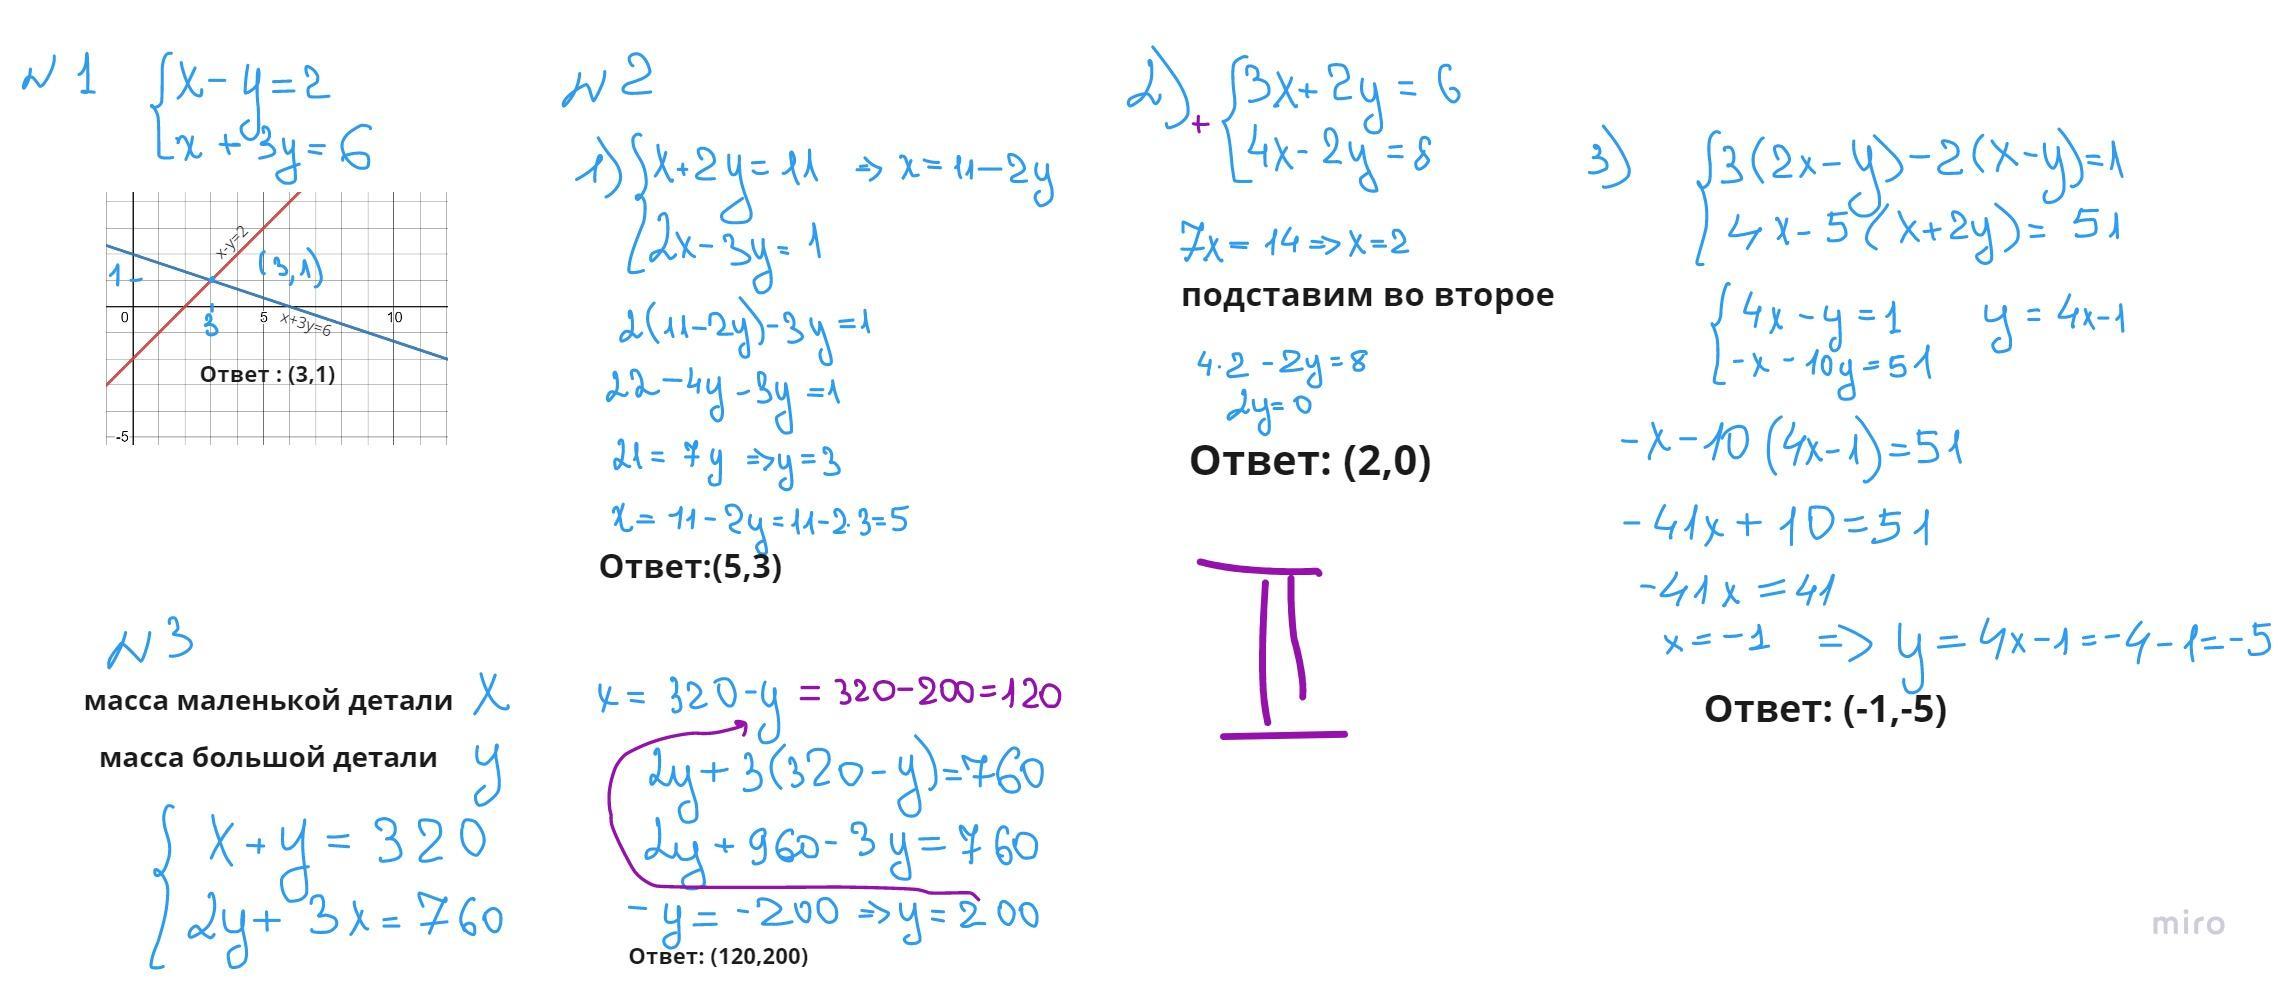 N 1
x - y = 2
x + 3y = 6
x-y=2
(3,1)
1
0
3
5
10
x+3y=6
Ответ : (3,1)
-5
N 2
1) x + 2y = 11 => x = 11 - 2y
2x - 3y = 1
2(11-2y) - 3y = 1
22 - 4y - 3y = 1
21 = 7y => y = 3
x = 11 - 2y = 11 - 2·3 = 5
Ответ:(5,3)
2) + 3x + 2y = 6
4x - 2y = 8
7x = 14 => x = 2
подставим во второе
4·2 - 2y = 8
2y = 0
Ответ: (2,0)
II
3) 3(2x - y) - 2(x - y) = 1
4x - 5(x + 2y) = 51
4x - y = 1 y = 4x - 1
-x - 10y = 51
-x - 10(4x-1) = 51
-41x + 10 = 51
-41x = 41
x = -1 => y = 4x - 1 = -4 - 1 = -5
Ответ: (-1,-5)
N 3
масса маленькой детали x
масса большой детали y
x + y = 320
2y + 3x = 760
x = 320 - y = 320 - 200 = 120
2y + 3(320 - y) = 760
2y + 960 - 3y = 760
-y = -200 => y = 200
Ответ: (120,200)
miro